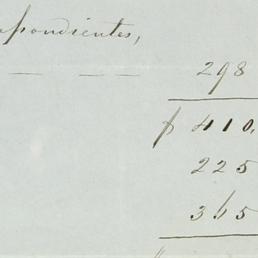 spondientes,
— — — 298
$ 410.
225
365